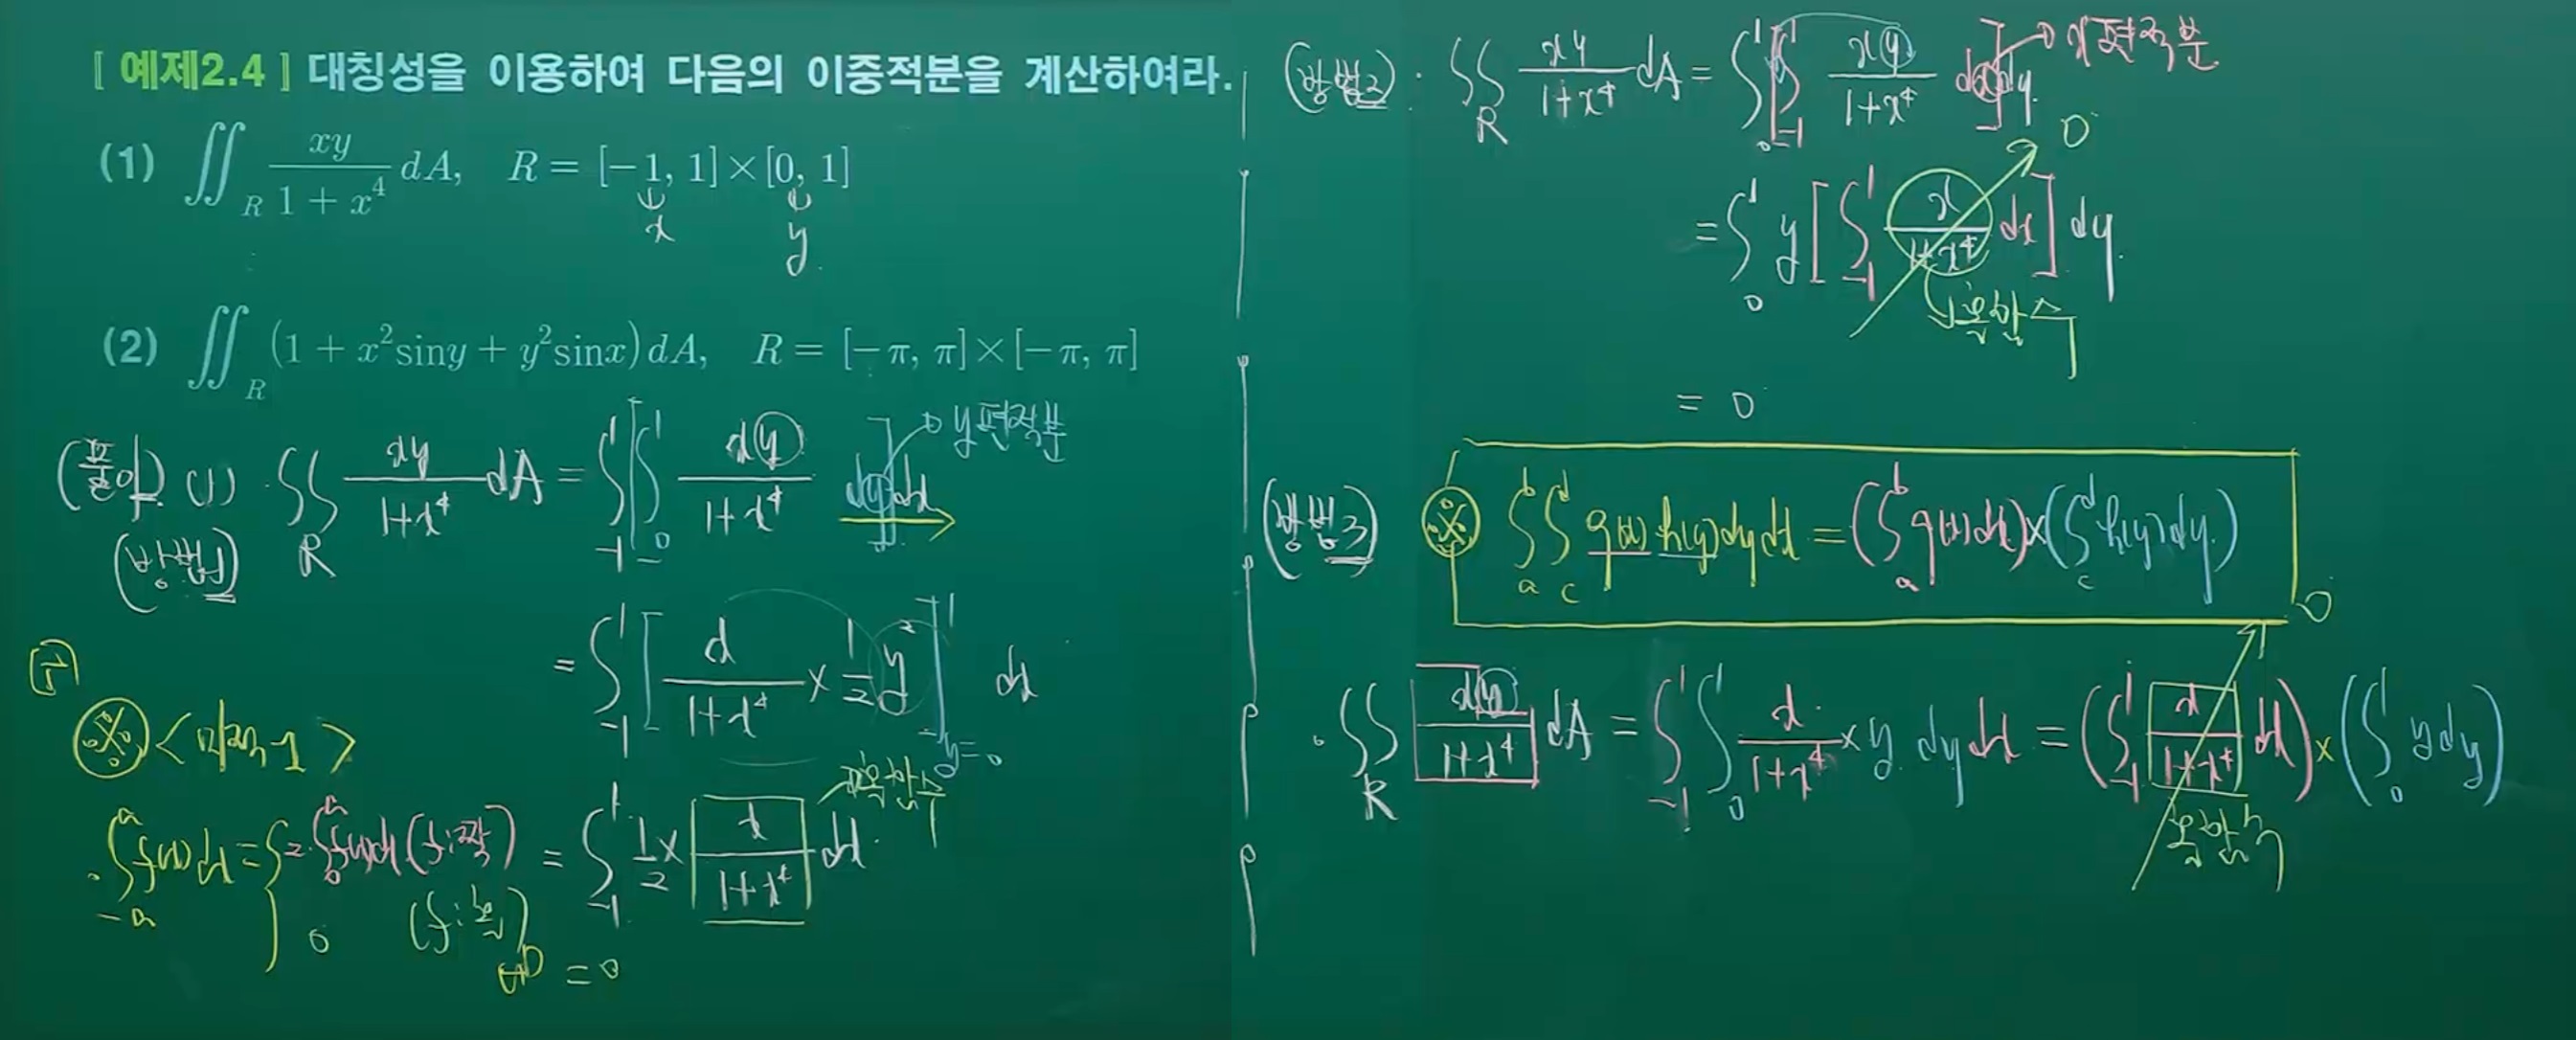 [ 예제2.4 ] 대칭성을 이용하여 다음의 이중적분을 계산하여라.
(1) ∬_R xy/(1 + x^4) dA, R = [−1, 1]×[0, 1]
x y
(2) ∬_R (1 + x²siny + y²sinx) dA, R = [−π, π]×[−π, π]
(풀이) (1) · ∬_R xy/(1+x^4) dA = ∫_{-1}^{1} [∫_0^1 xy/(1+x^4) dy] dx → y편적분
(방법1)
= ∫_{-1}^{1} [ x/(1+x^4) × 1/2 y² ]_{y=0}^{1} dx
= ∫_{-1}^{1} 1/2 × x/(1+x^4) dx → 기함수
= 0
※ <미적분1>
· ∫_{-a}^{a} f(x)dx = { 2·∫_0^a f(x)dx (f:짝)
0 (f:홀)
(방법2) · ∬_R xy/(1+x^4) dA = ∫_0^1 [∫_{-1}^{1} xy/(1+x^4) dx] dy → x편적분
= ∫_0^1 y [ ∫_{-1}^{1} x/(1+x^4) dx ] dy → 0
홀함수
= 0
(방법3) ※ ∫_a^b ∫_c^d g(x) h(y) dy dx = (∫_a^b g(x)dx) × (∫_c^d h(y)dy)
· ∬_R xy/(1+x^4) dA = ∫_{-1}^{1} ∫_0^1 x/(1+x^4) × y dy dx = (∫_{-1}^{1} x/(1+x^4) dx) × (∫_0^1 y dy)
0
홀함수